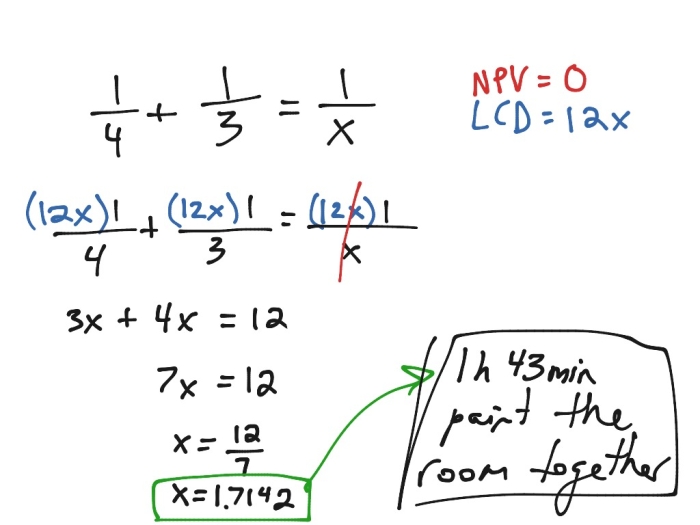 1/4 + 1/3 = 1/x
NPV = 0
LCD = 12x
(12x)1/4 + (12x)1/3 = (12x)1/x
3x + 4x = 12
7x = 12
x = 12/7
x = 1.7142
1h 43min
paint the
room together